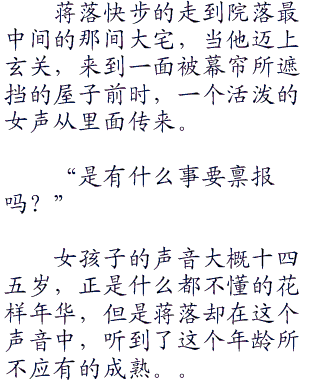 蒋落快步的走到院落最
中间的那间大宅，当他迈上
玄关，来到一面被幕帘所遮
挡的屋子前时，一个活泼的
女声从里面传来。
“是有什么事要禀报
吗？”
女孩子的声音大概十四
五岁，正是什么都不懂的花
样年华，但是蒋落却在这个
声音中，听到了这个年龄所
不应有的成熟。。